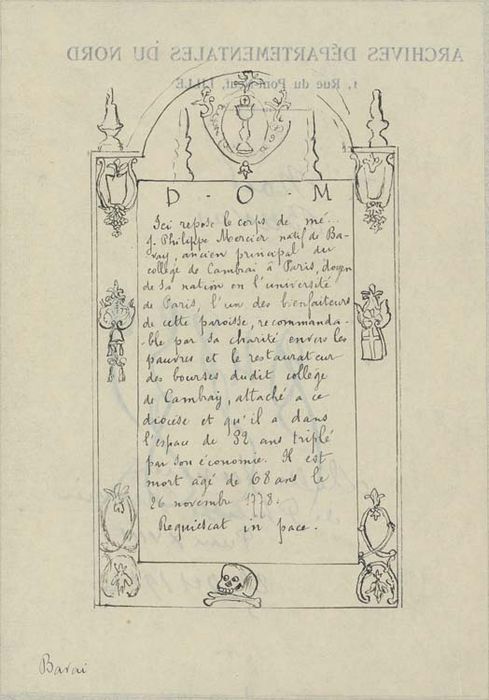 ARCHIVES DÉPARTEMENTALES DU NORD
1, Rue du Pont-Neuf, LILLE
D . O . M
Ici repose le corps de mé...
J. Philippe Mercier natif de Ba-
vay, ancien principal du
collège de Cambrai à Paris, doyen
de sa nation en l'université
de Paris, l'un des bienfaiteurs
de cette paroisse, recommanda-
-ble par sa charité envers les
pauvres et le restaurateur
des bourses dudit collège
de Cambray, attaché a ce
diocèse et qu'il a dans
l'espace de 32 ans triplé
par son économie. Il est
mort âgé de 68 ans le
26 novembre 1778.
Requiescat in pace.
Bavai